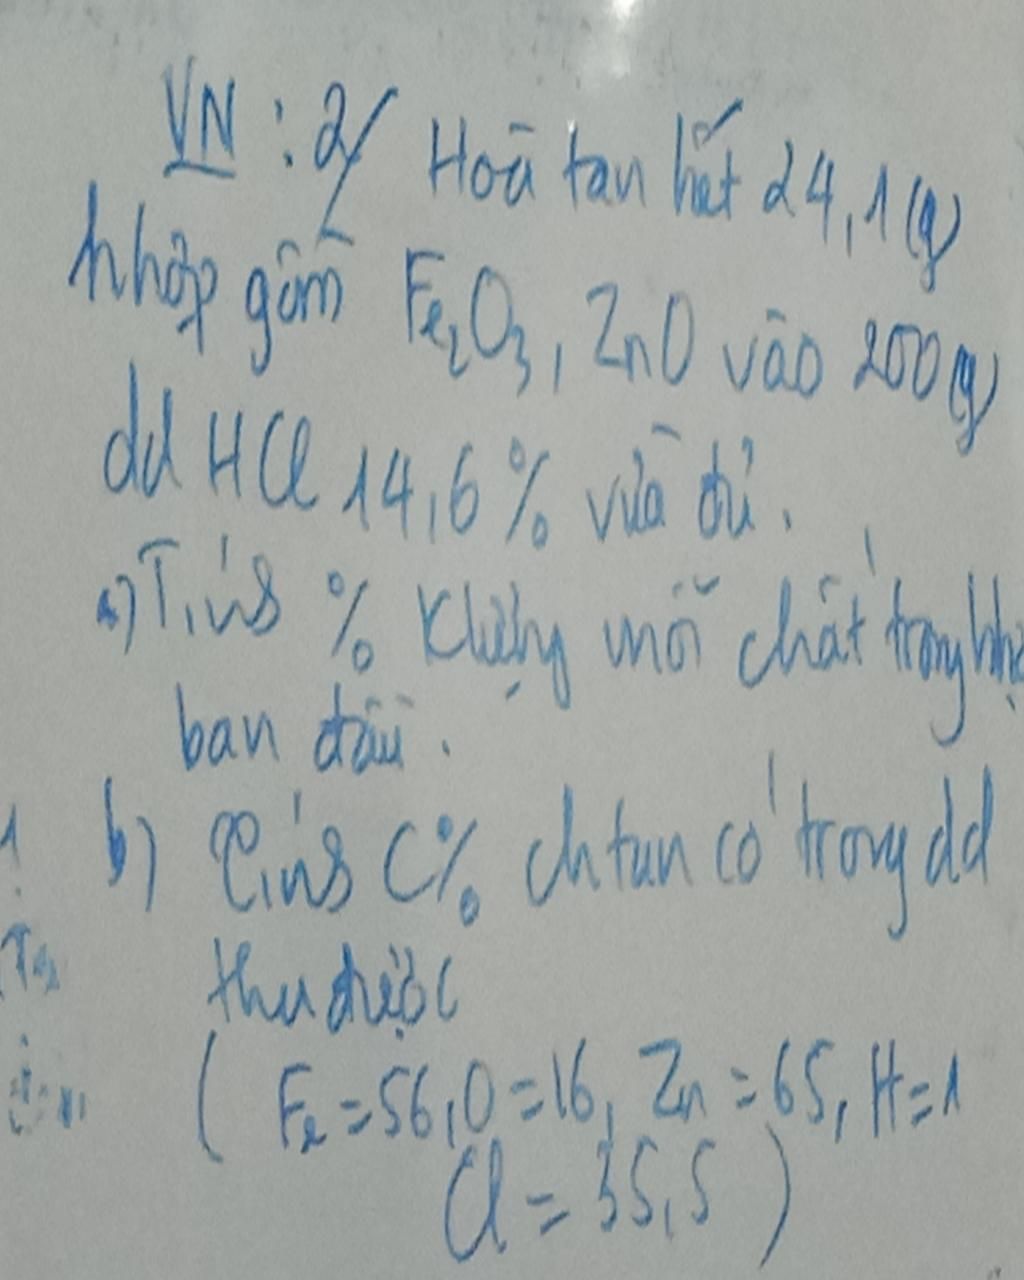 VN : 2/ Hoà tan hết 24,1 (g)
hhợp gồm Fe₂O₃, ZnO vào 200 (g)
dd HCl 14,6 % vừa đủ.
a) Tính % klượng mỗi chất trong hh
ban đầu.
b) Tính C% ch tan có trong dd
thu được
( Fe = 56, O = 16, Zn = 65, H = 1
Cl = 35,5 )